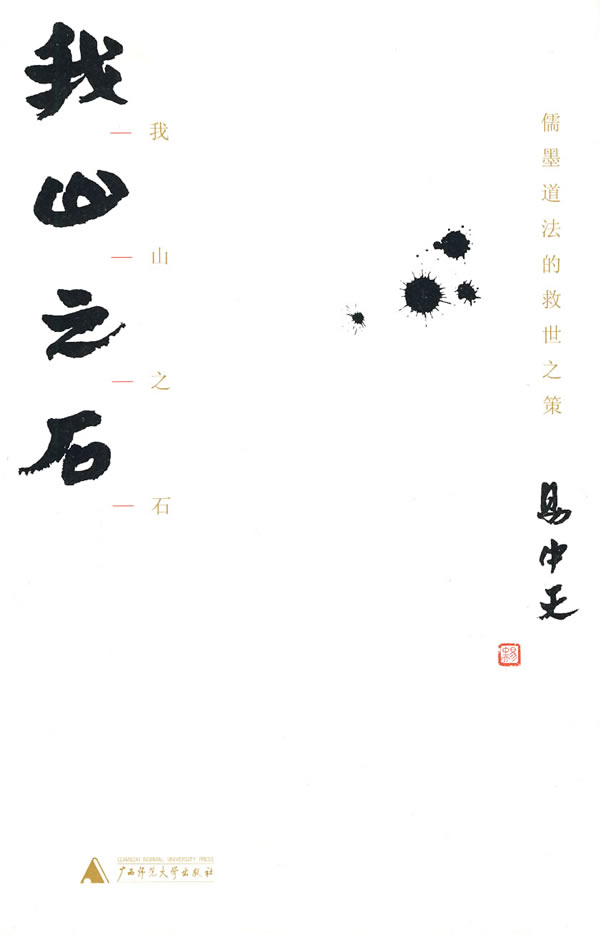 我山之石
我山之石
儒墨道法的救世之策
易中天
GUANGXI NORMAL UNIVERSITY PRESS
广西师范大学出版社